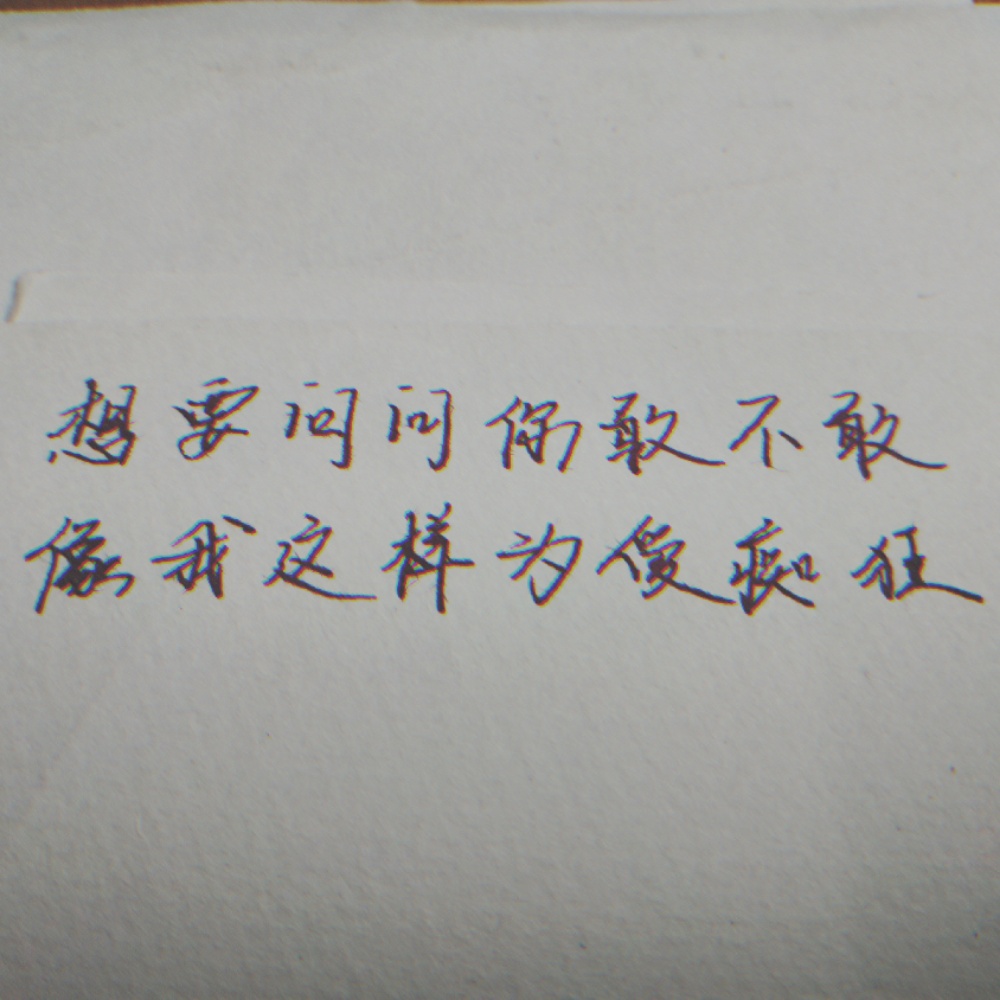 想要问问你敢不敢
像我这样为傻痴狂